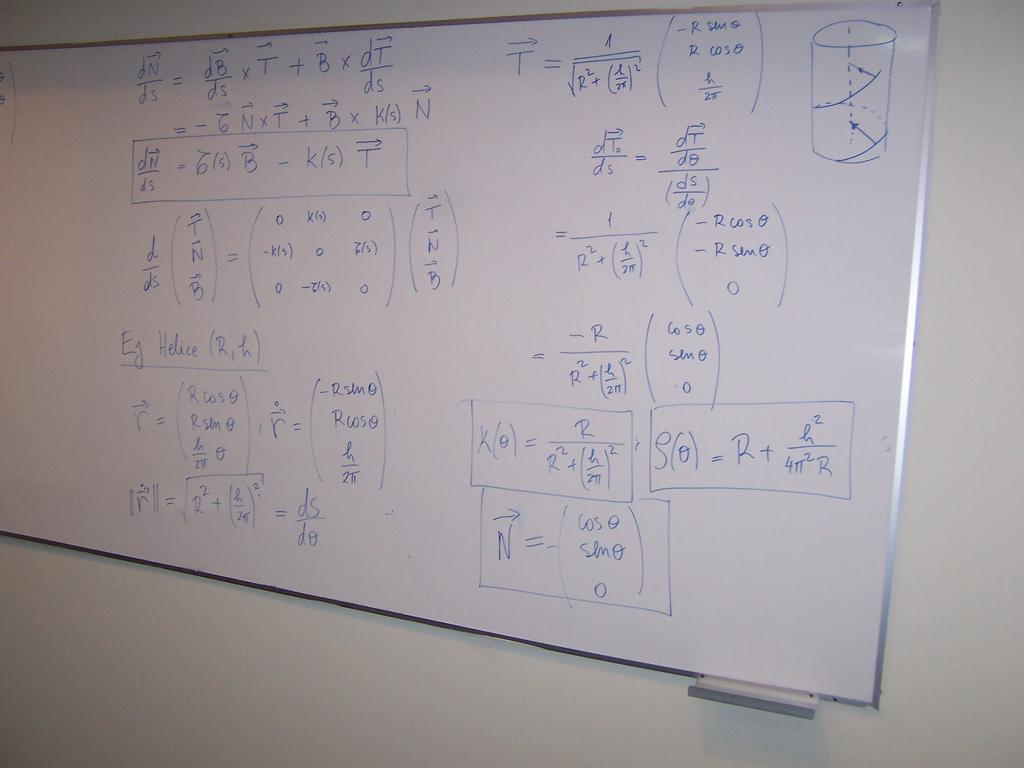 dN⃗/ds = dB⃗/ds × T⃗ + B⃗ × dT⃗/ds
= - τ N⃗ × T⃗ + B⃗ × K(s) N⃗
dN⃗/ds = τ(s) B⃗ - K(s) T⃗
d/ds (T⃗ N⃗ B⃗) = (0 K(s) 0
-K(s) 0 τ(s)
0 -τ(s) 0) (T⃗ N⃗ B⃗)
Eg Helice (R, h)
r⃗ = (R cosθ
R sinθ
h/2π θ) , r⃗̇ = (-R sinθ
R cosθ
h/2π)
||r⃗̇|| = √(R² + (h/2π)²) = ds/dθ
T⃗ = 1/√(R² + (h/2π)²) (-R sinθ
R cosθ
h/2π)
dT⃗/ds = (dT⃗/dθ)/(ds/dθ)
= 1/(R² + (h/2π)²) (-R cosθ
-R sinθ
0)
= -R/(R² + (h/2π)²) (cosθ
sinθ
0)
K(θ) = R/(R² + (h/2π)²) , ρ(θ) = R + h²/4π²R
N⃗ = - (cosθ
sinθ
0)